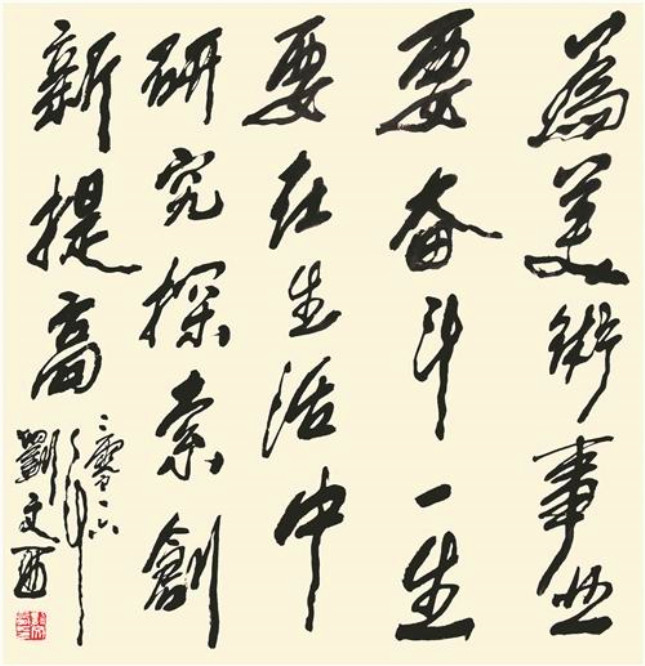 為美術事业
要奋斗一生
要在生活中
研究探索創
新提高
二零一六
年
劉文西